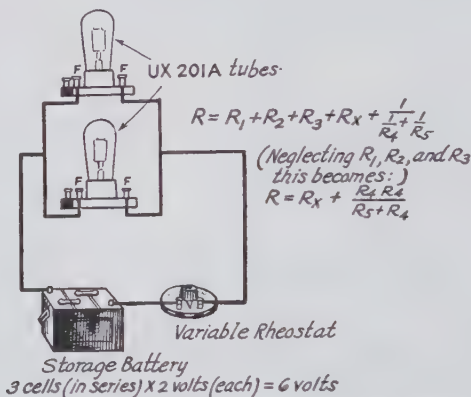 F F
UX 201A tubes.
R = R1 + R2 + R3 + Rx + 1/(1/R4 + 1/R5)
F F
(Neglecting R1, R2, and R3
this becomes:)
R = Rx + R4 R4/(R5 + R4)
Variable Rheostat
Storage Battery
3 cells (in series) X 2 volts (each) = 6 volts